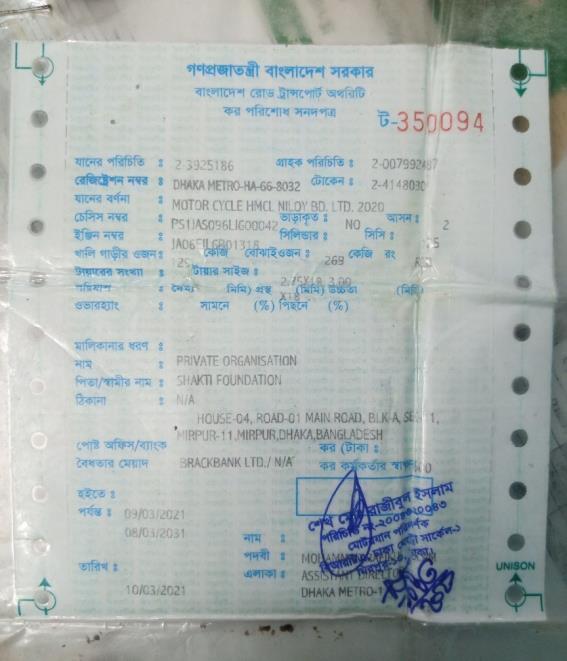 গণপ্রজাতন্ত্রী বাংলাদেশ সরকার
বাংলাদেশ রোড ট্রান্সপোর্ট অথরিটি
কর পরিশোধ সনদপত্র
ট-350094
যানের পরিচিতি : 2-3925186 গ্রাহক পরিচিতি :
রেজিষ্ট্রেশন নম্বর : DHAKA METRO-HA-66-8032 টোকেন : 2-4148030
যানের বর্ণনা : MOTOR CYCLE HMCL NILOY BD. LTD. 2020
চেসিস নম্বর : ভাড়াকৃত : NO আসন : 2
ইঞ্জিন নম্বর : সিলিন্ডার : সিসি :
খালি গাড়ীর ওজন : কেজি বোঝাইওজন : 269 কেজি রং
টায়ারের সংখ্যা : টায়ার সাইজ :
(মিমি) প্রস্থ (মিমি) উচ্চতা (মিমি)
ওভারহ্যাং : সামনে (%) পিছনে (%)
মালিকানার ধরণ :
নাম : PRIVATE ORGANISATION
পিতা/স্বামীর নাম : SHAKTI FOUNDATION
ঠিকানা : N/A
HOUSE-04, ROAD-01 MAIN ROAD, BLK-A,
MIRPUR-11,MIRPUR,DHAKA,BANGLADESH
পোষ্ট অফিস/ব্যাংক কর (টাকা :
বৈধতার মেয়াদ BRACKBANK LTD./ N/A কর কর্মকর্তার
হইতে :
পর্যন্ত : 09/03/2021
08/03/2031
নাম :
পদবী :
তারিখ : এলাকা : ASSISTANT DIRECTOR
10/03/2021 DHAKA METRO-1
UNISON